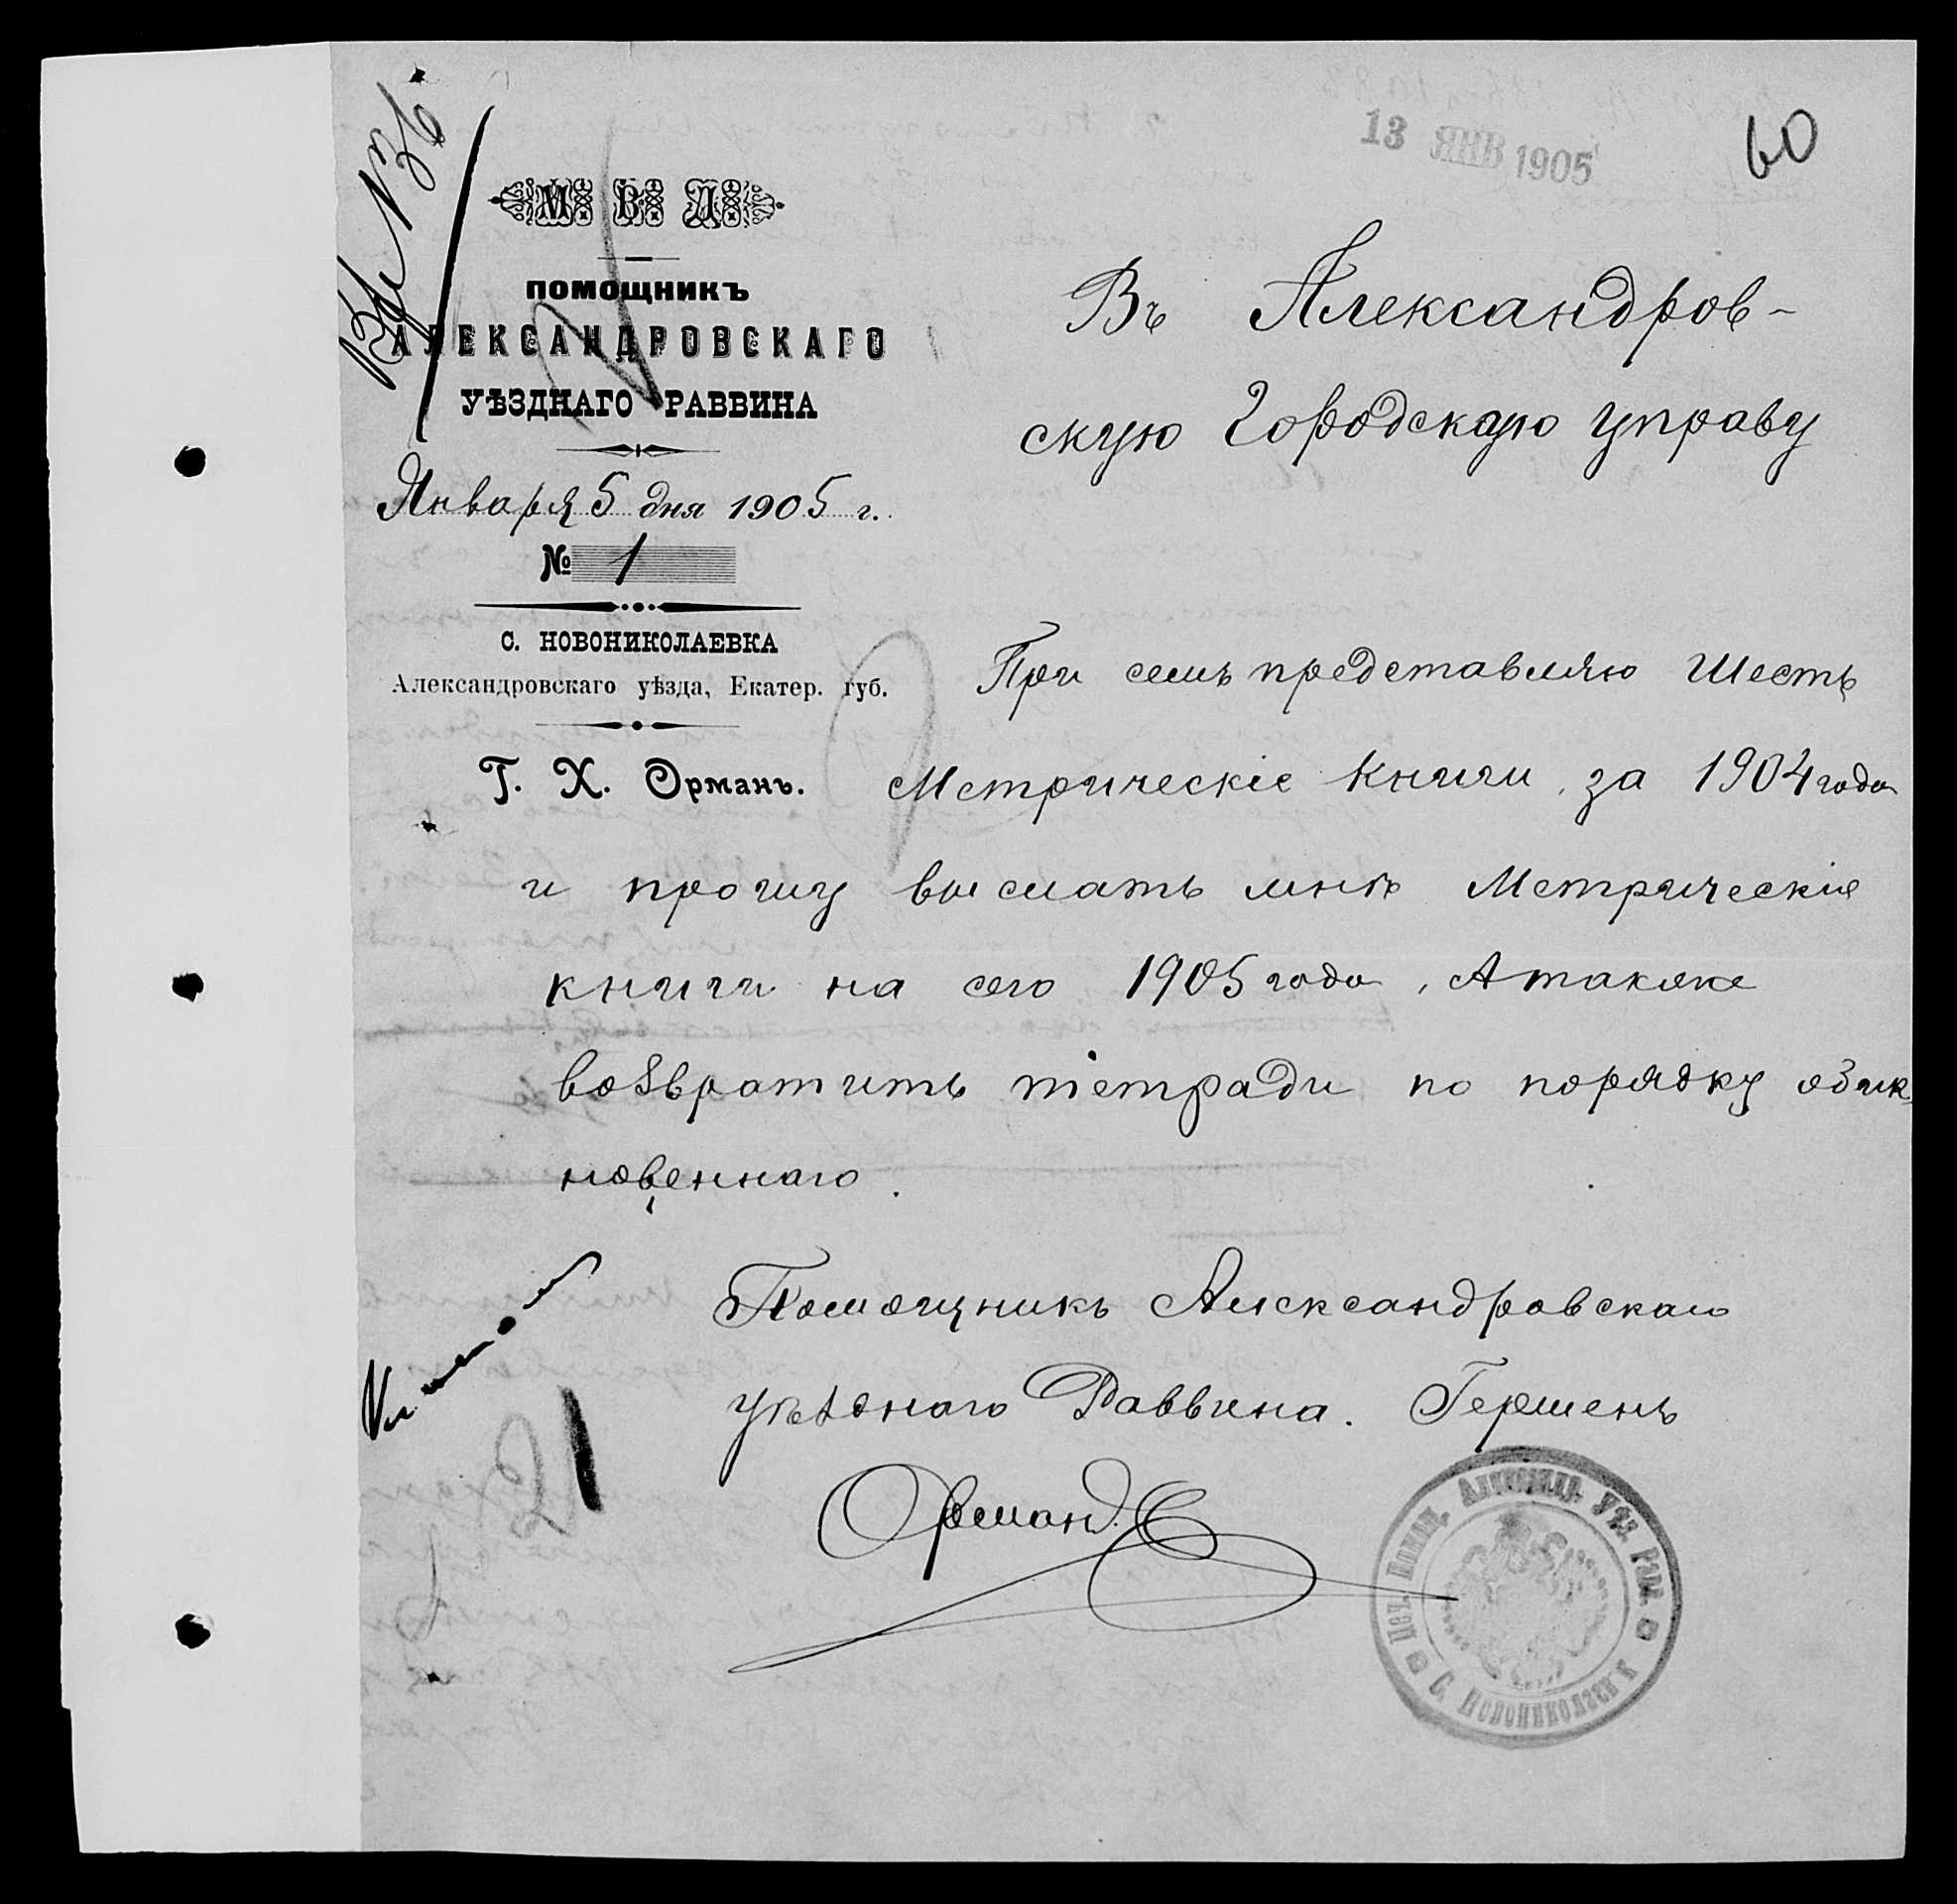 Вх №36
13 ЯНВ 1905
60
М В Д
ПОМОЩНИКЪ
АЛЕКСАНДРОВСКАГО
УѢЗДНАГО РАВВИНА
Января 5 дня 1905 г.
№ 1
С. НОВОНИКОЛАЕВКА
Александровскаго уѣзда, Екатер. губ.
Г. Х. Орманъ.
Въ Александров-
скую Городскую управу
При семъ представляю Шесть
Метрическіе книги за 1904 года
и прошу выслать мнѣ Метрическія
книги на сего 1905 года, А также
возвратить тетради по порядку обик-
новеннаго.
Помощникъ Александровскаго
уѣзднаго Раввина. Гершенъ
Орман
21
Печ. Помощ. Александр. Уѣз. Рав.
С. Новониколаевка